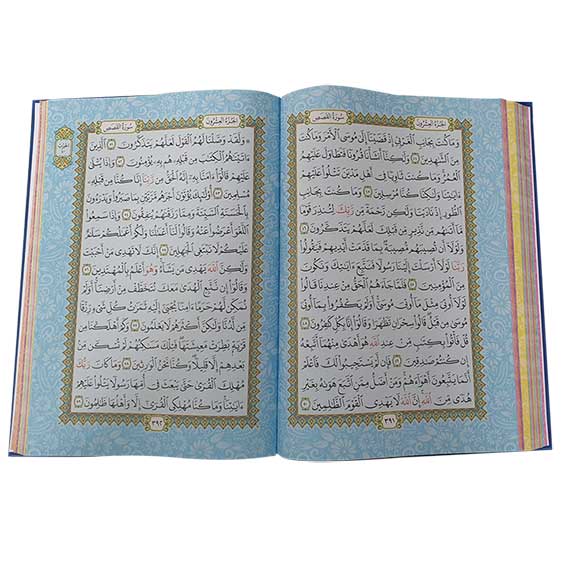 الجُزْءُ العِشْرُونَ سُورَةُ القَصَصِ
وَمَا كُنتَ بِجَانِبِ ٱلْغَرْبِيِّ إِذْ قَضَيْنَآ إِلَىٰ مُوسَى ٱلْأَمْرَ وَمَا كُنتَ
مِنَ ٱلشَّٰهِدِينَ ٤٤ وَلَٰكِنَّآ أَنشَأْنَا قُرُونًا فَتَطَاوَلَ عَلَيْهِمُ
ٱلْعُمُرُ وَمَا كُنتَ ثَاوِيًا فِيٓ أَهْلِ مَدْيَنَ تَتْلُوا۟ عَلَيْهِمْ
ءَايَٰتِنَا وَلَٰكِنَّا كُنَّا مُرْسِلِينَ ٤٥ وَمَا كُنتَ بِجَانِبِ
ٱلطُّورِ إِذْ نَادَيْنَا وَلَٰكِن رَّحْمَةً مِّن رَّبِّكَ لِتُنذِرَ قَوْمًا
مَّآ أَتَىٰهُم مِّن نَّذِيرٍ مِّن قَبْلِكَ لَعَلَّهُمْ يَتَذَكَّرُونَ ٤٦
وَلَوْلَآ أَن تُصِيبَهُم مُّصِيبَةٌۢ بِمَا قَدَّمَتْ أَيْدِيهِمْ فَيَقُولُوا۟
رَبَّنَا لَوْلَآ أَرْسَلْتَ إِلَيْنَا رَسُولًا فَنَتَّبِعَ ءَايَٰتِكَ وَنَكُونَ
مِنَ ٱلْمُؤْمِنِينَ ٤٧ فَلَمَّا جَآءَهُمُ ٱلْحَقُّ مِنْ عِندِنَا قَالُوا۟
لَوْلَآ أُوتِيَ مِثْلَ مَآ أُوتِيَ مُوسَىٰٓ أَوَلَمْ يَكْفُرُوا۟ بِمَآ أُوتِيَ
مُوسَىٰ مِن قَبْلُ قَالُوا۟ سِحْرَانِ تَظَٰهَرَا وَقَالُوٓا۟ إِنَّا بِكُلٍّ كَٰفِرُونَ ٤٨
قُلْ فَأْتُوا۟ بِكِتَٰبٍ مِّنْ عِندِ ٱللَّهِ هُوَ أَهْدَىٰ مِنْهُمَآ أَتَّبِعْهُ
إِن كُنتُمْ صَٰدِقِينَ ٤٩ فَإِن لَّمْ يَسْتَجِيبُوا۟ لَكَ فَٱعْلَمْ
أَنَّمَا يَتَّبِعُونَ أَهْوَآءَهُمْ وَمَنْ أَضَلُّ مِمَّنِ ٱتَّبَعَ هَوَىٰهُ بِغَيْرِ
هُدًى مِّنَ ٱللَّهِ إِنَّ ٱللَّهَ لَا يَهْدِي ٱلْقَوْمَ ٱلظَّٰلِمِينَ ٥٠
٣٩١
الجُزْءُ العِشْرُونَ سُورَةُ القَصَصِ
وَلَقَدْ وَصَّلْنَا لَهُمُ ٱلْقَوْلَ لَعَلَّهُمْ يَتَذَكَّرُونَ ٥١ ٱلَّذِينَ
ءَاتَيْنَٰهُمُ ٱلْكِتَٰبَ مِن قَبْلِهِۦ هُم بِهِۦ يُؤْمِنُونَ ٥٢ وَإِذَا يُتْلَىٰ
عَلَيْهِمْ قَالُوٓا۟ ءَامَنَّا بِهِۦٓ إِنَّهُ ٱلْحَقُّ مِن رَّبِّنَآ إِنَّا كُنَّا مِن قَبْلِهِۦ
مُسْلِمِينَ ٥٣ أُو۟لَٰٓئِكَ يُؤْتَوْنَ أَجْرَهُم مَّرَّتَيْنِ بِمَا صَبَرُوا۟ وَيَدْرَءُونَ
بِٱلْحَسَنَةِ ٱلسَّيِّئَةَ وَمِمَّا رَزَقْنَٰهُمْ يُنفِقُونَ ٥٤ وَإِذَا سَمِعُوا۟
ٱللَّغْوَ أَعْرَضُوا۟ عَنْهُ وَقَالُوا۟ لَنَآ أَعْمَٰلُنَا وَلَكُمْ أَعْمَٰلُكُمْ سَلَٰمٌ
عَلَيْكُمْ لَا نَبْتَغِي ٱلْجَٰهِلِينَ ٥٥ إِنَّكَ لَا تَهْدِي مَنْ أَحْبَبْتَ
وَلَٰكِنَّ ٱللَّهَ يَهْدِي مَن يَشَآءُ وَهُوَ أَعْلَمُ بِٱلْمُهْتَدِينَ ٥٦
وَقَالُوٓا۟ إِن نَّتَّبِعِ ٱلْهُدَىٰ مَعَكَ نُتَخَطَّفْ مِنْ أَرْضِنَآ أَوَلَمْ
نُمَكِّن لَّهُمْ حَرَمًا ءَامِنًا يُجْبَىٰٓ إِلَيْهِ ثَمَرَٰتُ كُلِّ شَيْءٍ رِّزْقًا
مِّن لَّدُنَّا وَلَٰكِنَّ أَكْثَرَهُمْ لَا يَعْلَمُونَ ٥٧ وَكَمْ أَهْلَكْنَا مِن
قَرْيَةٍۭ بَطِرَتْ مَعِيشَتَهَا فَتِلْكَ مَسَٰكِنُهُمْ لَمْ تُسْكَن مِّنۢ
بَعْدِهِمْ إِلَّا قَلِيلًا وَكُنَّا نَحْنُ ٱلْوَٰرِثِينَ ٥٨ وَمَا كَانَ رَبُّكَ
مُهْلِكَ ٱلْقُرَىٰ حَتَّىٰ يَبْعَثَ فِيٓ أُمِّهَا رَسُولًا يَتْلُوا۟ عَلَيْهِمْ
ءَايَٰتِنَا وَمَا كُنَّا مُهْلِكِي ٱلْقُرَىٰٓ إِلَّا وَأَهْلُهَا ظَٰلِمُونَ ٥٩
٣٩٢